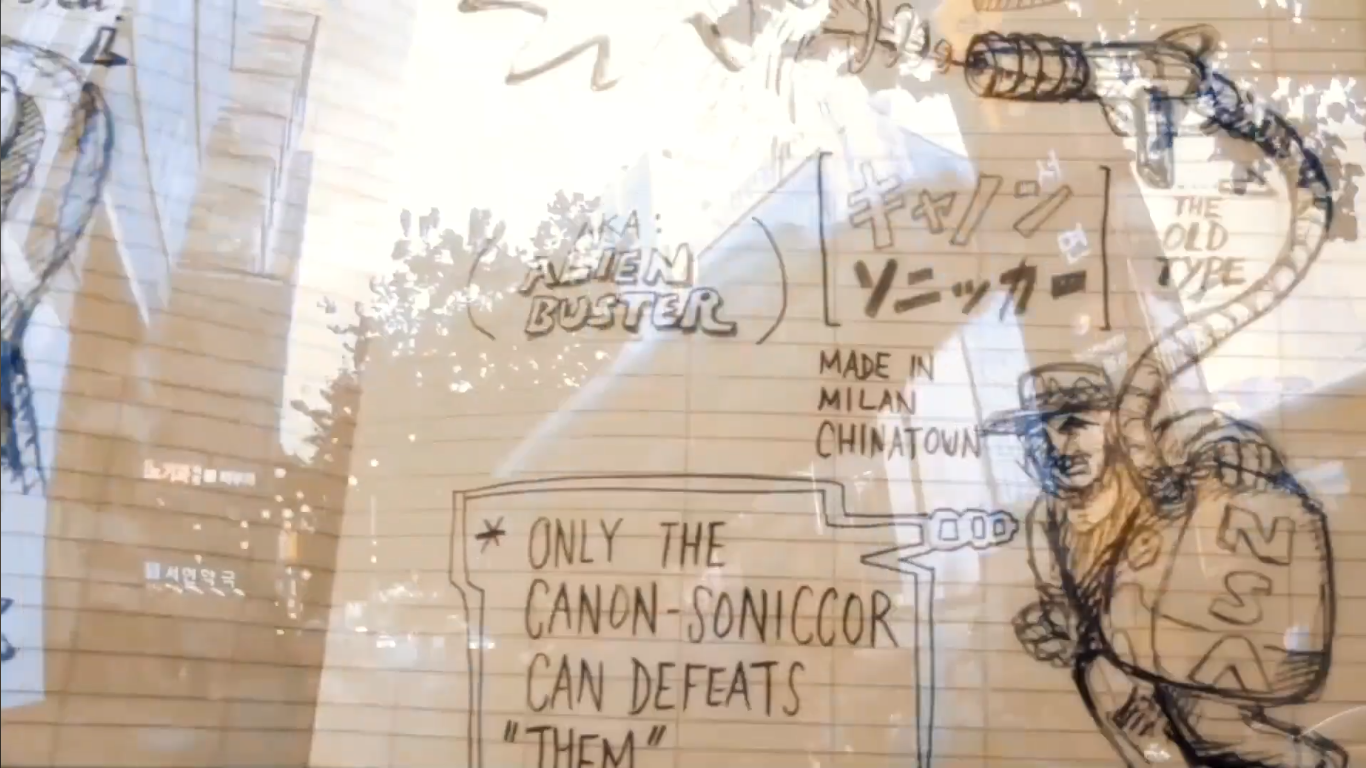 AKA:
ALIEN
BUSTER
キャノン
ソニッカー
THE
OLD
TYPE
MADE IN
MILAN
CHINATOWN
* ONLY THE
CANON-SONICCOR
CAN DEFEATS
"THEM"
서연약국